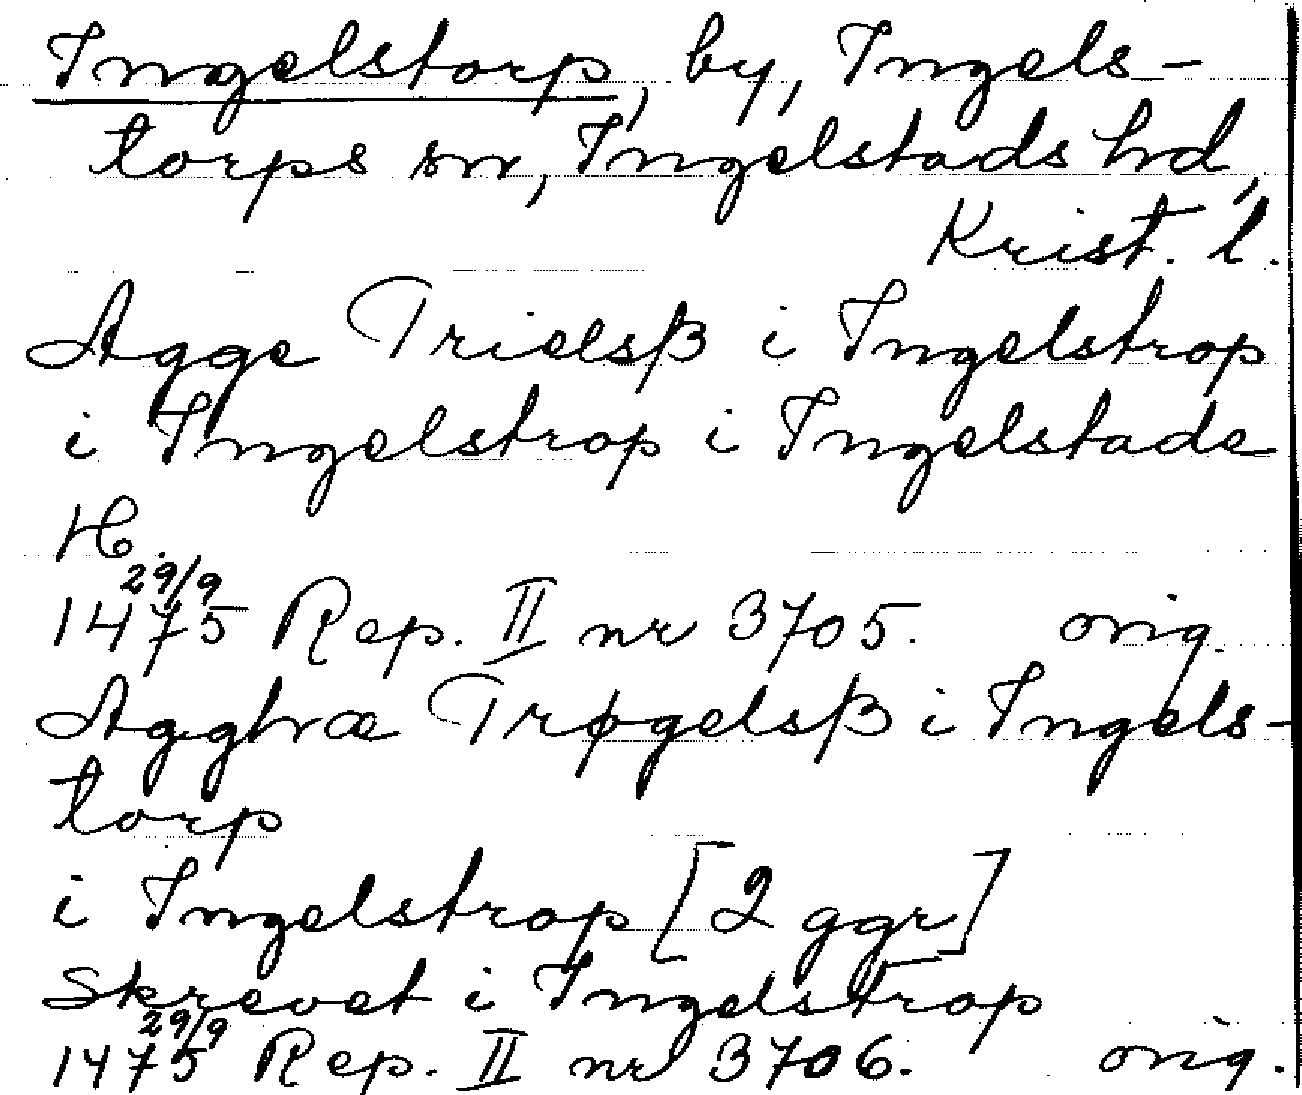 Ingelstorp, by, Ingels-
torps sn, Ingelstads hd,
Krist. l.
Agge Trielsß i Ingelstrop
i Ingelstrop i Ingelstade
H.
29/9
1475 Rep. II nr 3705. orig.
Agghræ Trøgelsß i Ingels-
torp
i Ingelstrop [2 ggr]
Skrevet i Ingelstrop
29/9
1475 Rep. II nr 3706. orig.